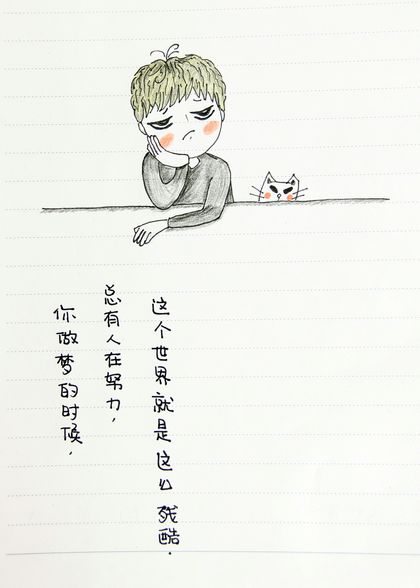 你做梦的时候，
总有人在努力，
这个世界就是这么残酷.